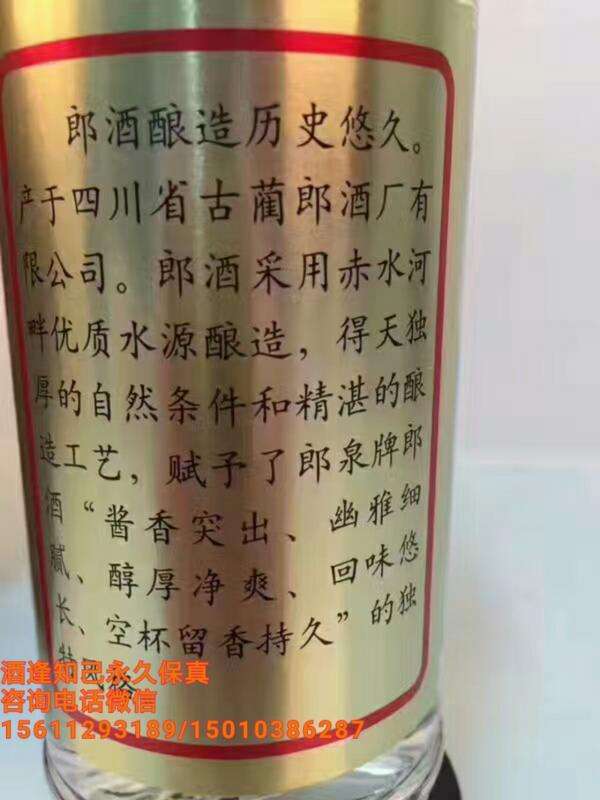 郎酒酿造历史悠久。
产于四川省古蔺郎酒厂有
限公司。郎酒采用赤水河
畔优质水源酿造，得天独
厚的自然条件和精湛的酿
造工艺，赋予了郎泉牌郎
酒“酱香突出、幽雅细
腻、醇厚净爽、回味悠
长、空杯留香持久”的独
特风格
酒逢知己永久保真
咨询电话微信
15611293189/15010386287